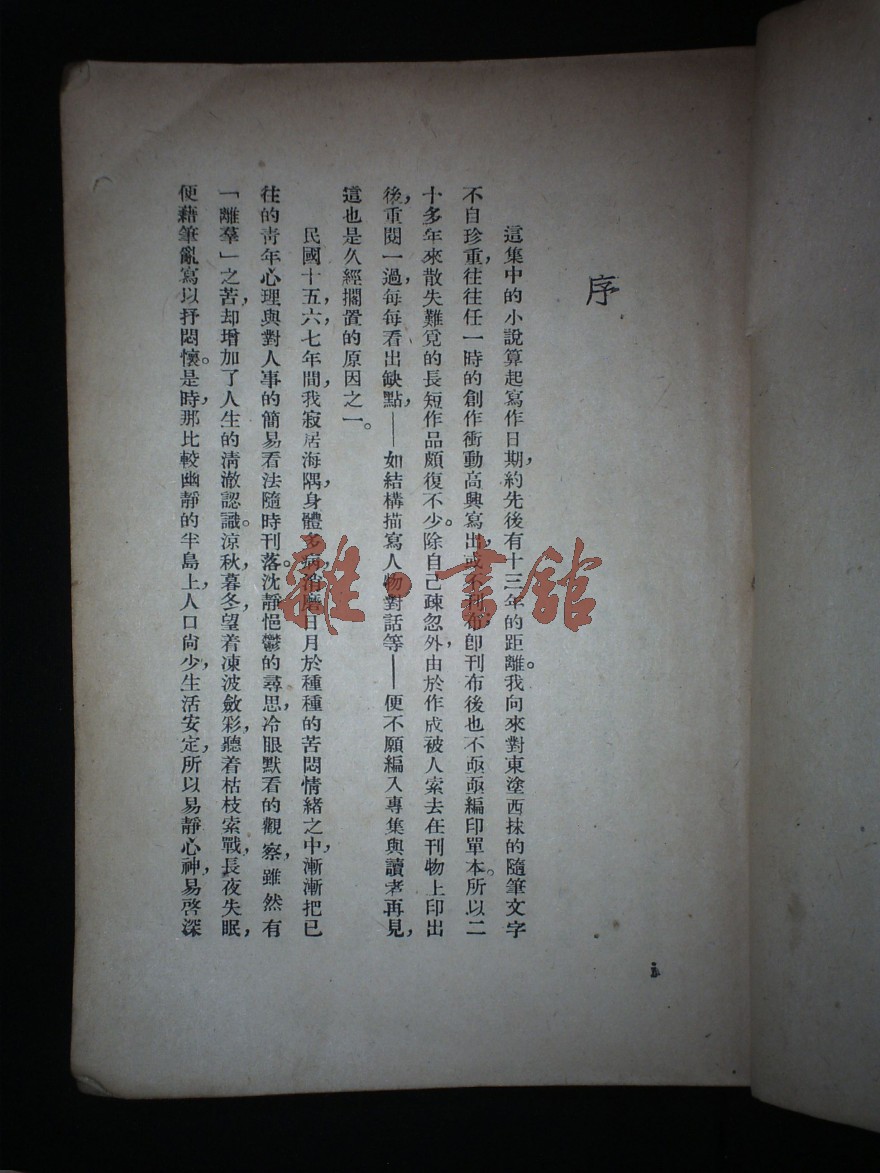 序
這集中的小說算起寫作日期，約先後有十三年的距離。我向來對東塗西抹的隨筆文字
不自珍重，往往任一時的創作衝動高興寫出，或不刊布，即刊布後也不亟亟編印單本。所以二
十多年來散失難覓的長短作品頗復不少。除自己疎忽外，由於作成被人索去在刊物上印出
後，重閱一過，每每看出缺點，——如結構描寫人物對話等——便不願編入專集與讀者再見，
這也是久經擱置的原因之一。
民國十五，六，七年間，我寂居海隅，身體多病，消磨日月於種種的苦悶情緒之中，漸漸把已
往的青年心理與對人事的簡易看法隨時刊落。沈靜悒鬱的尋思，冷眼默看的觀察，雖然有
「離羣」之苦，却增加了人生的清澈認識。涼秋，暮冬，望着凍波斂彩，聽着枯枝索戰，長夜失眠，
便藉筆亂寫以抒悶懷。是時，那比較幽靜的半島上，人口尙少，生活安定，所以易靜心神，易啓深
i
雜·書館